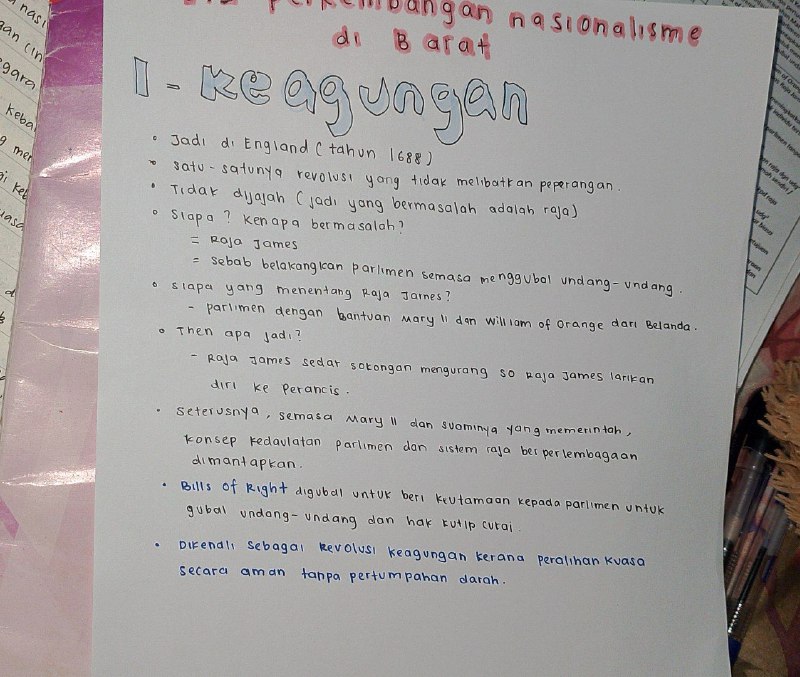 perkembangan nasionalisme
di Barat
1 - Keagungan
• Jadi di England (tahun 1688)
• satu-satunya revolusi yang tidak melibatkan peperangan.
• Tidak dijajah (jadi yang bermasalah adalah raja)
• Siapa? Kenapa bermasalah?
= Raja James
= sebab belakangkan parlimen semasa menggubal undang-undang.
• siapa yang menentang Raja James?
- parlimen dengan bantuan Mary II dan William of Orange dari Belanda.
• Then apa jadi?
- Raja James sedar sokongan mengurang so Raja James larikan
diri ke Perancis.
• seterusnya, semasa Mary II dan suaminya yang memerintah,
konsep kedaulatan parlimen dan sistem raja berperlembagaan
dimantapkan.
• Bills of Right digubal untuk beri keutamaan kepada parlimen untuk
gubal undang-undang dan hak kutip cukai.
• Dikenali sebagai Revolusi Keagungan kerana peralihan kuasa
secara aman tanpa pertumpahan darah.